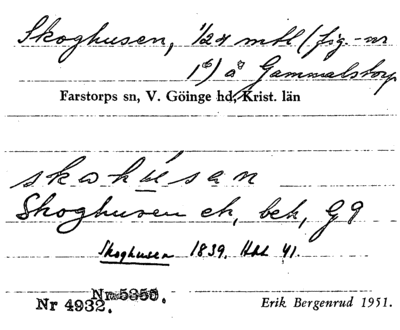 Skoghusen, 1/2 mtl (jfg.-nr
1) å Gammalstorp
Farstorps sn, V. Göinge hd, Krist. län
skohúsan
Skoghusen ek, bek, G9
Skoghusen 1839. Hbl 41.
Nr 5350.
Nr 4932.
Erik Bergenrud 1951.